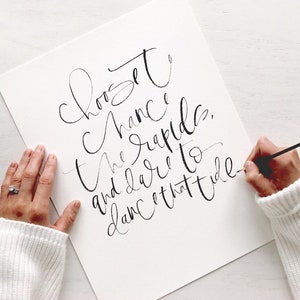 choose to
chance
the rapids,
and dare to
dance that tide.